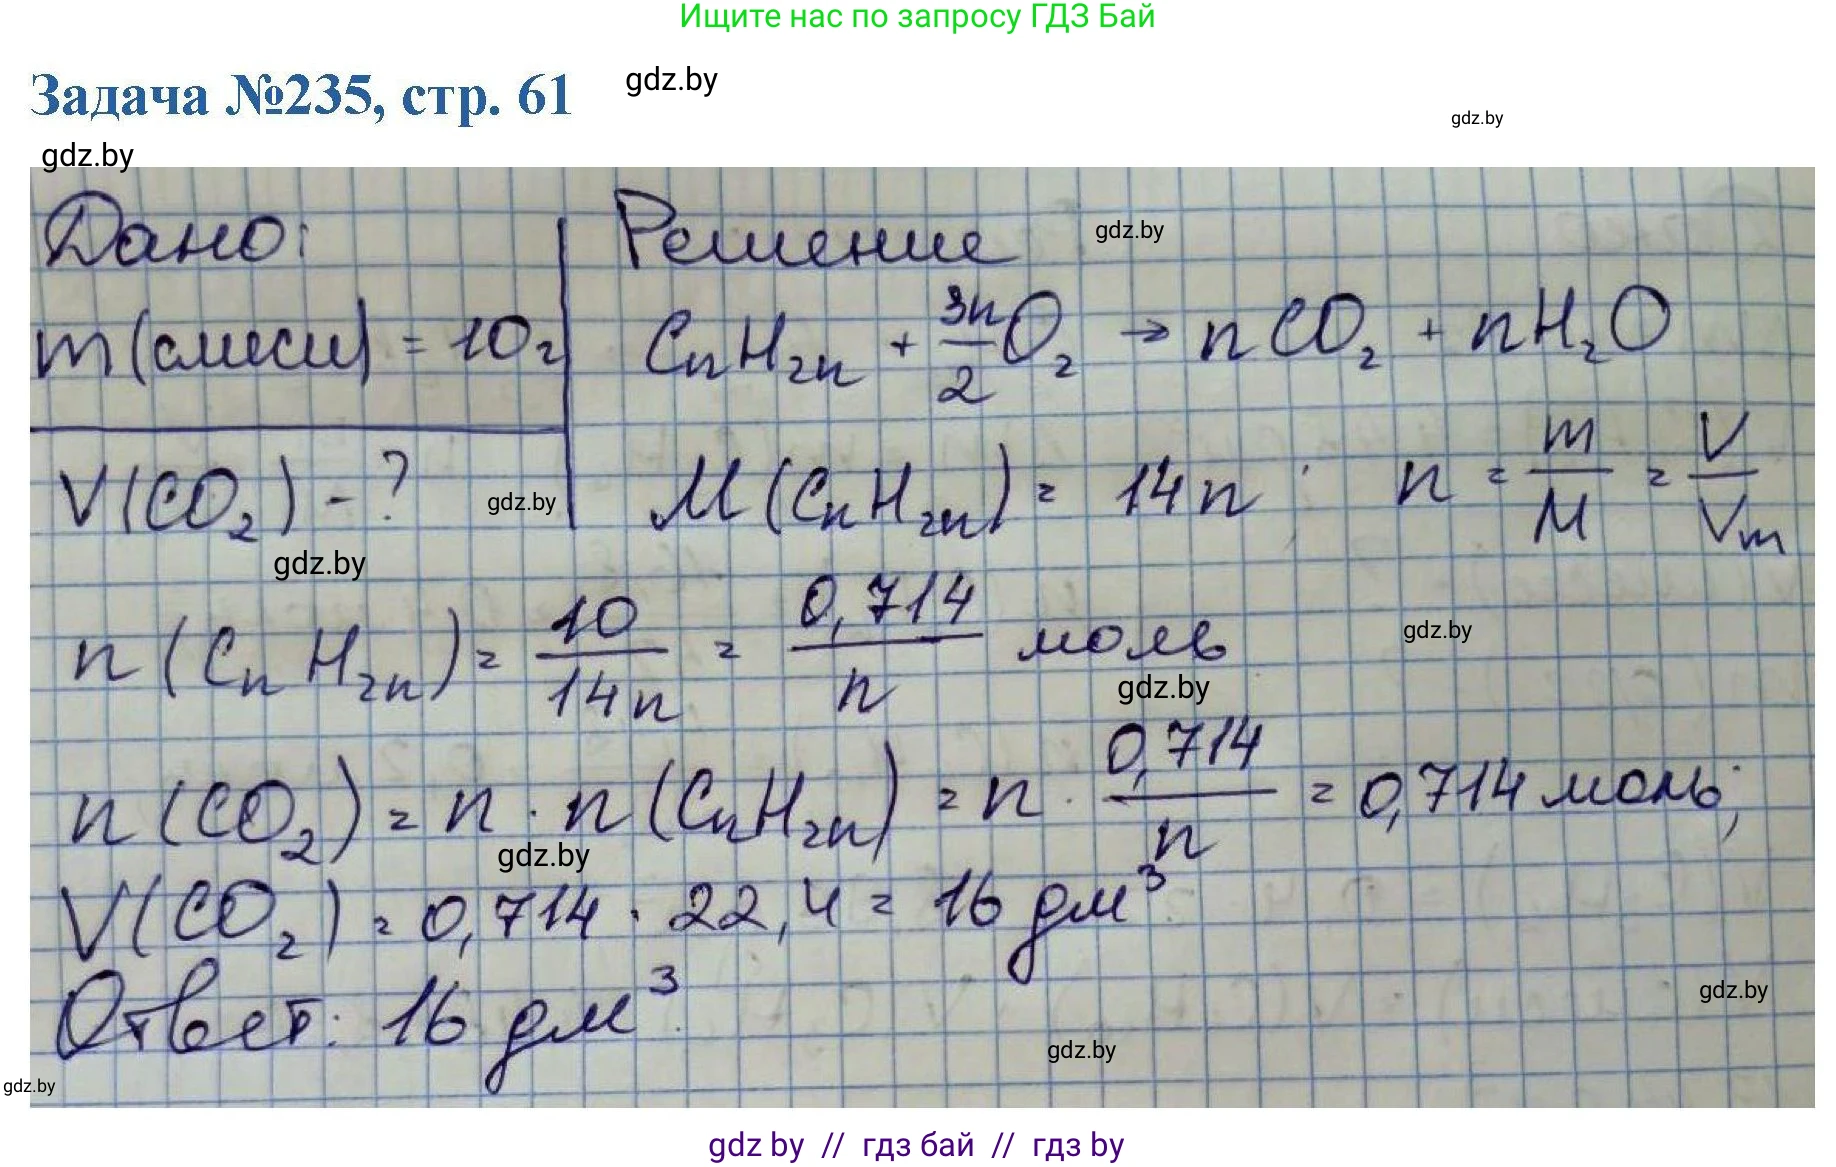 Ищите нас по запросу ГДЗ Бай
Задача №235, стр. 61
gdz.by
gdz.by
gdz.by
Дано:
Решение
gdz.by
m(смеси) = 10г
CnH2n + 3n/2 O2 → nCO2 + nH2O
V(CO2) - ?
gdz.by
M(CnH2n) = 14n; n = m/M = V/Vm
gdz.by
n(CnH2n) = 10/14n = 0,714/n моль
gdz.by
gdz.by
n(CO2) = n · n(CnH2n) = n · 0,714/n = 0,714 моль;
gdz.by
V(CO2) = 0,714 · 22,4 = 16 дм³
Ответ: 16 дм³.
gdz.by
gdz.by
gdz.by
gdz by // гдз бай // гдз by